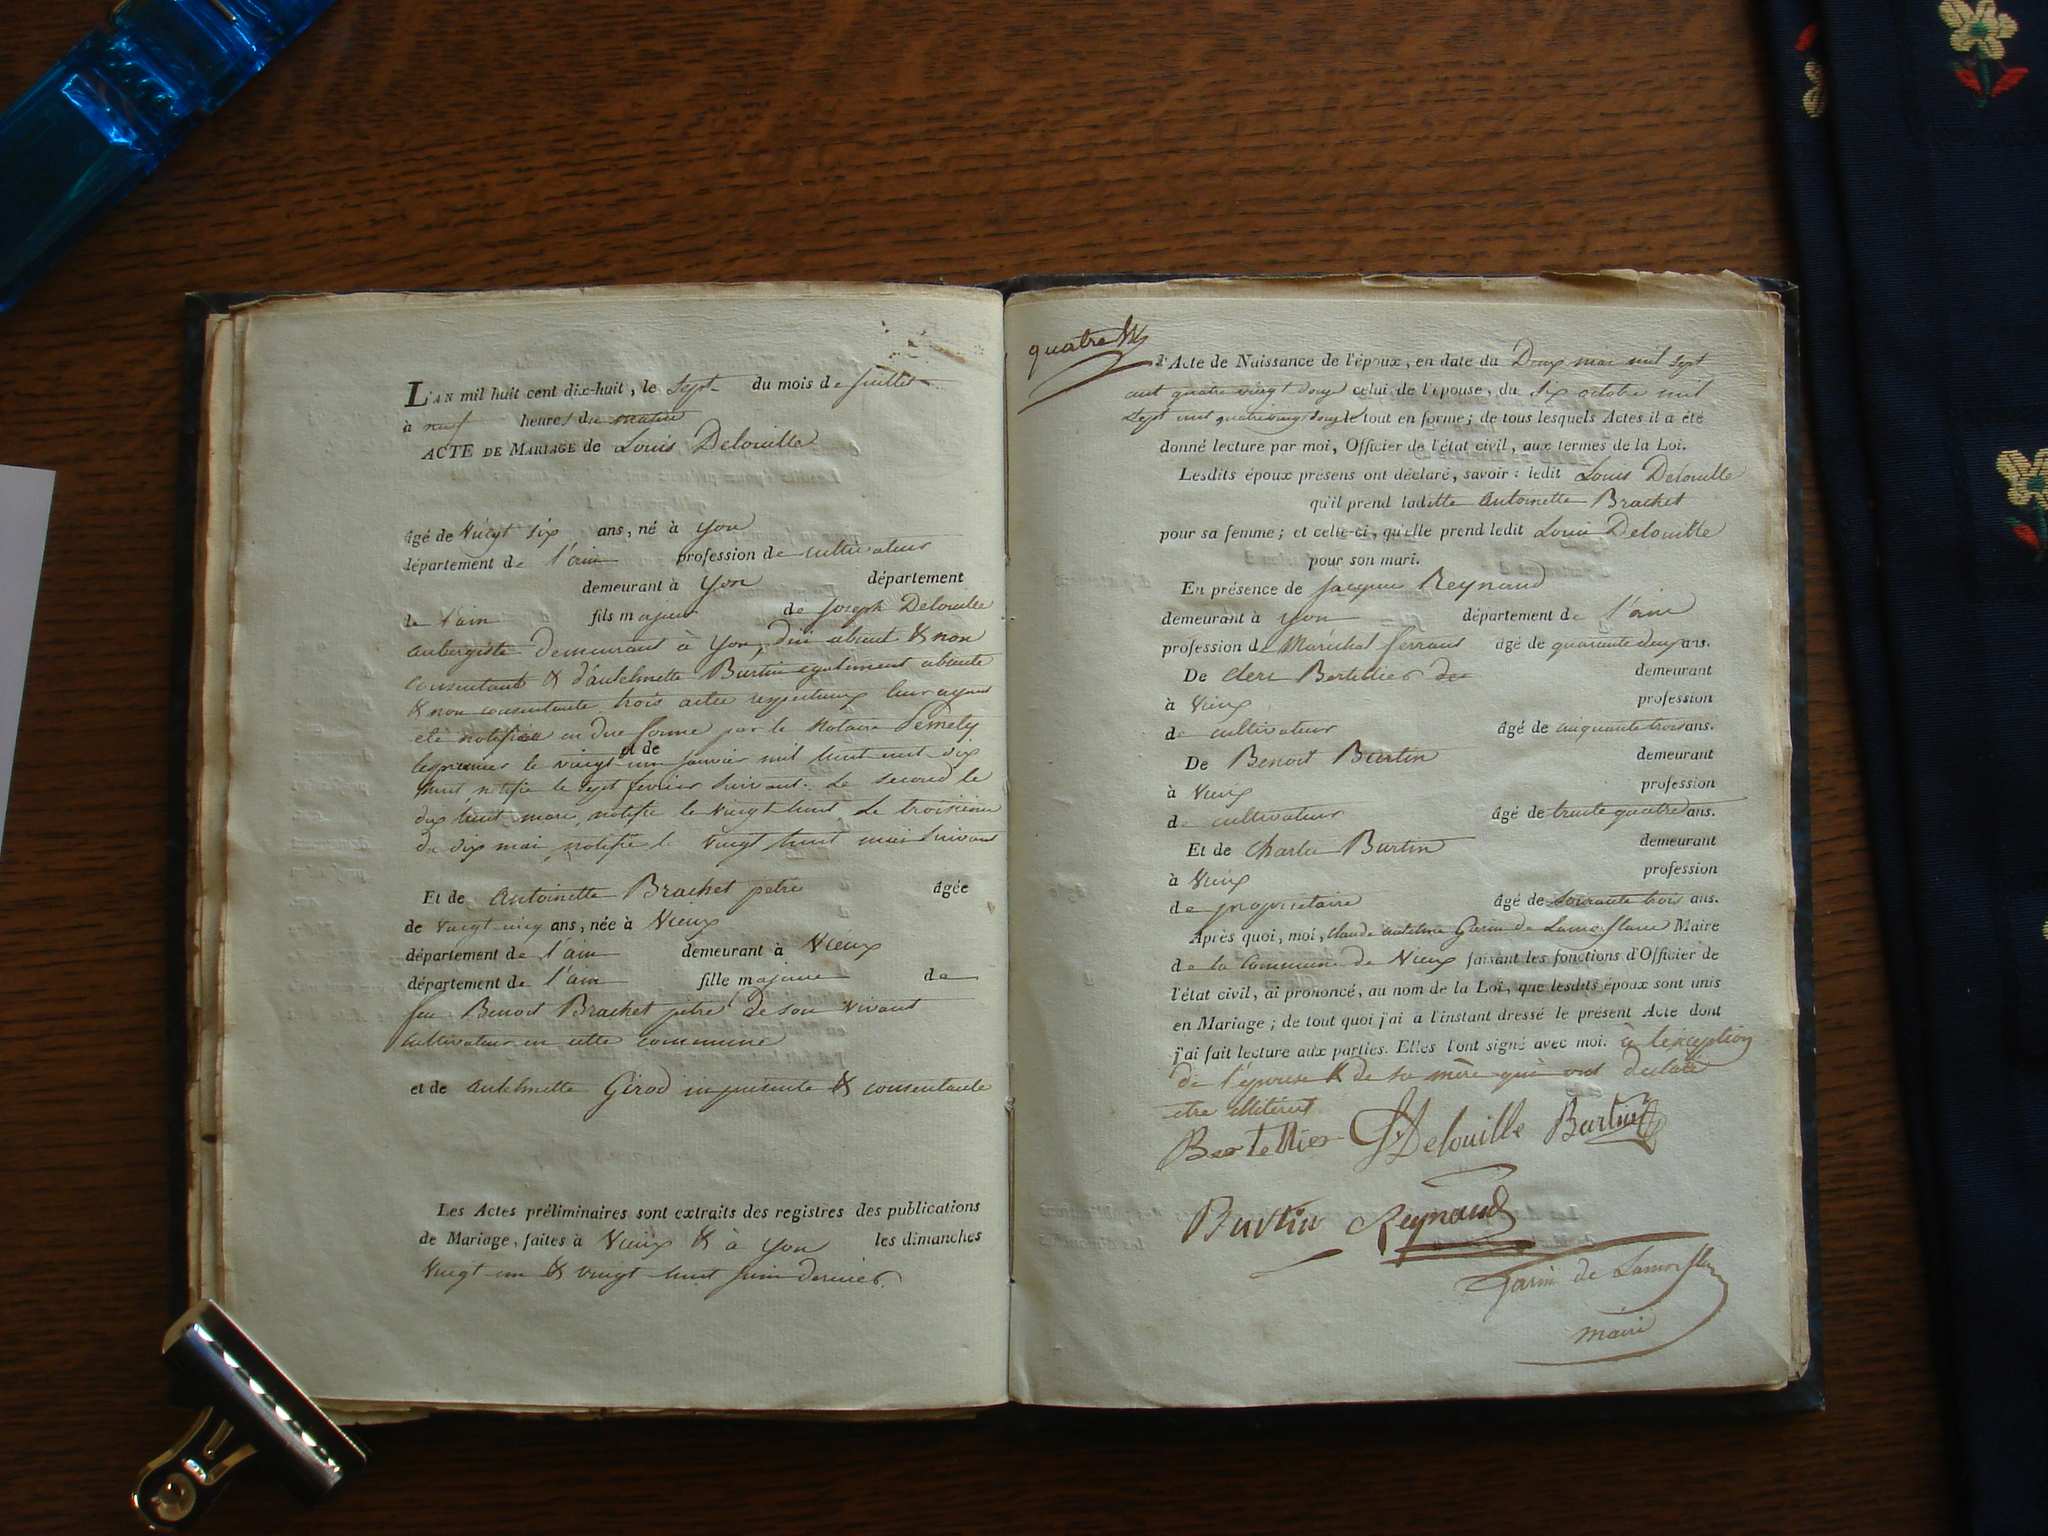 L'AN mil huit cent dix-huit, le Sept du mois de Juillet
à neuf heures du matin
ACTE DE MARIAGE de Louis Delouille
âgé de vingt six ans, né à yon
département de l'ain profession de cultivateur
demeurant à Yon département
de l'ain fils majeur de Joseph Delouille
aubergiste demeurant à Yon, absent & non
consentant & d'antelmette Burtin egalement absente
& non consentante trois actes respectueux leur ayant
été notifiés en due forme par le Notaire
le premier le vingt un et de Janvier mil huit cent dix
huit notifié le sept fevrier suivant. Le second le
dix huit mars, notifié le vingt huit Le troisieme
du dix mai, notifié le vingt huit mai suivant
Et de Antoinette Brachet petre âgée
de vingt cinq ans, née à Vieux
département de l'ain demeurant à Vieux
département de l'ain fille majeure de
feu Benoit Brachet petre de son vivant
cultivateur en cette commune
et de antelmette Girod ici presente & consentante
Les Actes préliminaires sont extraits des registres des publications
de Mariage, faites à Vieux & à yon les dimanches
vingt un & vingt huit juin dernier.
quatre
l'Acte de Naissance de l'époux, en date du Douze mai mil sept
cent quatre vingt douze celui de l'épouse, du six octobre mil
sept cent quatrevingt douze le tout en forme; de tous lesquels Actes il a été
donné lecture par moi, Officier de l'état civil, aux termes de la Loi.
Lesdits époux présens ont déclaré, savoir: ledit Louis Delouille
qu'il prend ladite antoinette Brachet
pour sa femme; et celle-ci, qu'elle prend ledit Louis Delouille
pour son mari.
En présence de Jacques Reynaud
demeurant à yon département de l'ain
profession de Maréchal ferrant âgé de quarante deux ans.
De Clere Bertellier demeurant
à Vieux profession
de cultivateur âgé de cinquante trois ans.
De Benoit Burtin demeurant
à Vieux profession
de cultivateur âgé de trente quatre ans.
Et de Charles Burtin demeurant
à Vieux profession
de propriétaire âgé de soixante trois ans.
Après quoi, moi, Claude antelme Garin de Lamorflane Maire
de la Commune de Vieux faisant les fonctions d'Officier de
l'état civil, ai prononcé, au nom de la Loi, que lesdits époux sont unis
en Mariage; de tout quoi j'ai à l'instant dressé le présent Acte dont
j'ai fait lecture aux parties. Elles l'ont signé avec moi. à l'exception
de l'épouse & de sa mère qui ont declaré
etre
Bertellier Delouille Burtin
Burtin Reynaud
Garin de Lamorflan
maire